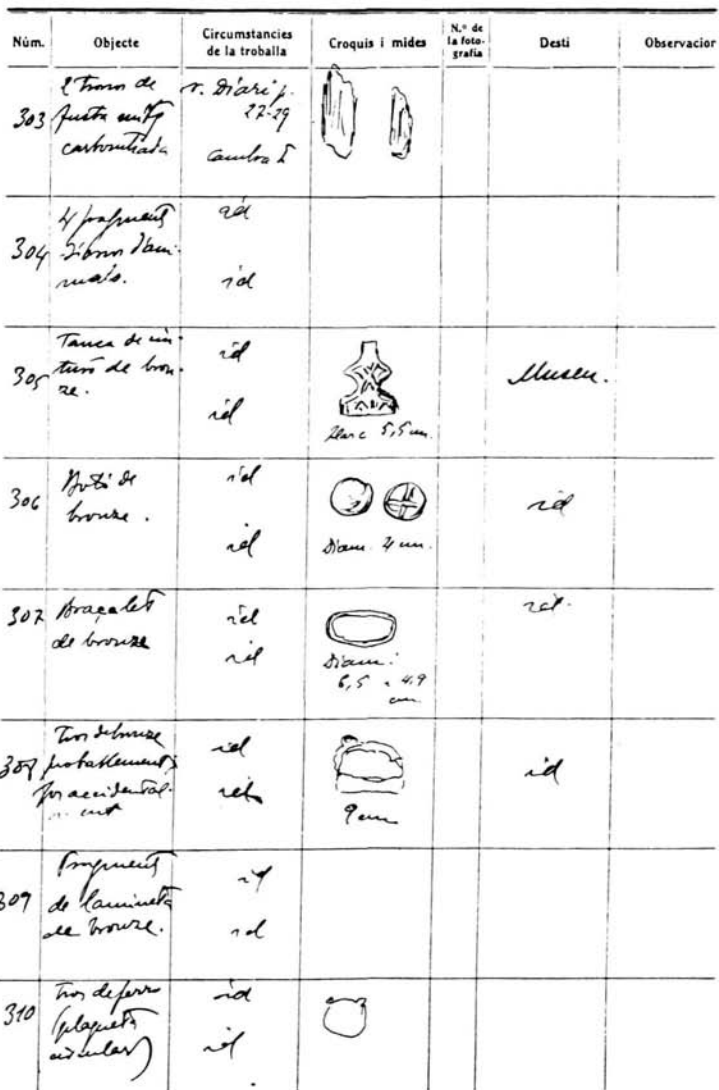 Núm.
Objecte
Circumstancies
de la troballa
Croquis i mides
N.º de
la foto-
grafia
Desti
Observacior
303
2 trossos de
fusta
carbonitzada
v. Diari p.
27-29
cambra I
304
4 fragments
d'ossos d'ani-
mals.
id
id
305
Tanca de cin-
turó de bron-
ze.
id
id
Llarc 5,5 cm.
Museu.
306
Botó de
bronze.
id
id
Diam. 4 cm.
id
307
Braçalet
de bronze
id
id
Diam:
6,5 x 4,9
cm
id.
308
Tros de bronze
probablement
accidental-
ment
id
id
9 cm
id
309
Fragment
de lamineta
de bronze.
id
id
310
tros de ferro
(plaqueta
circular)
id
id